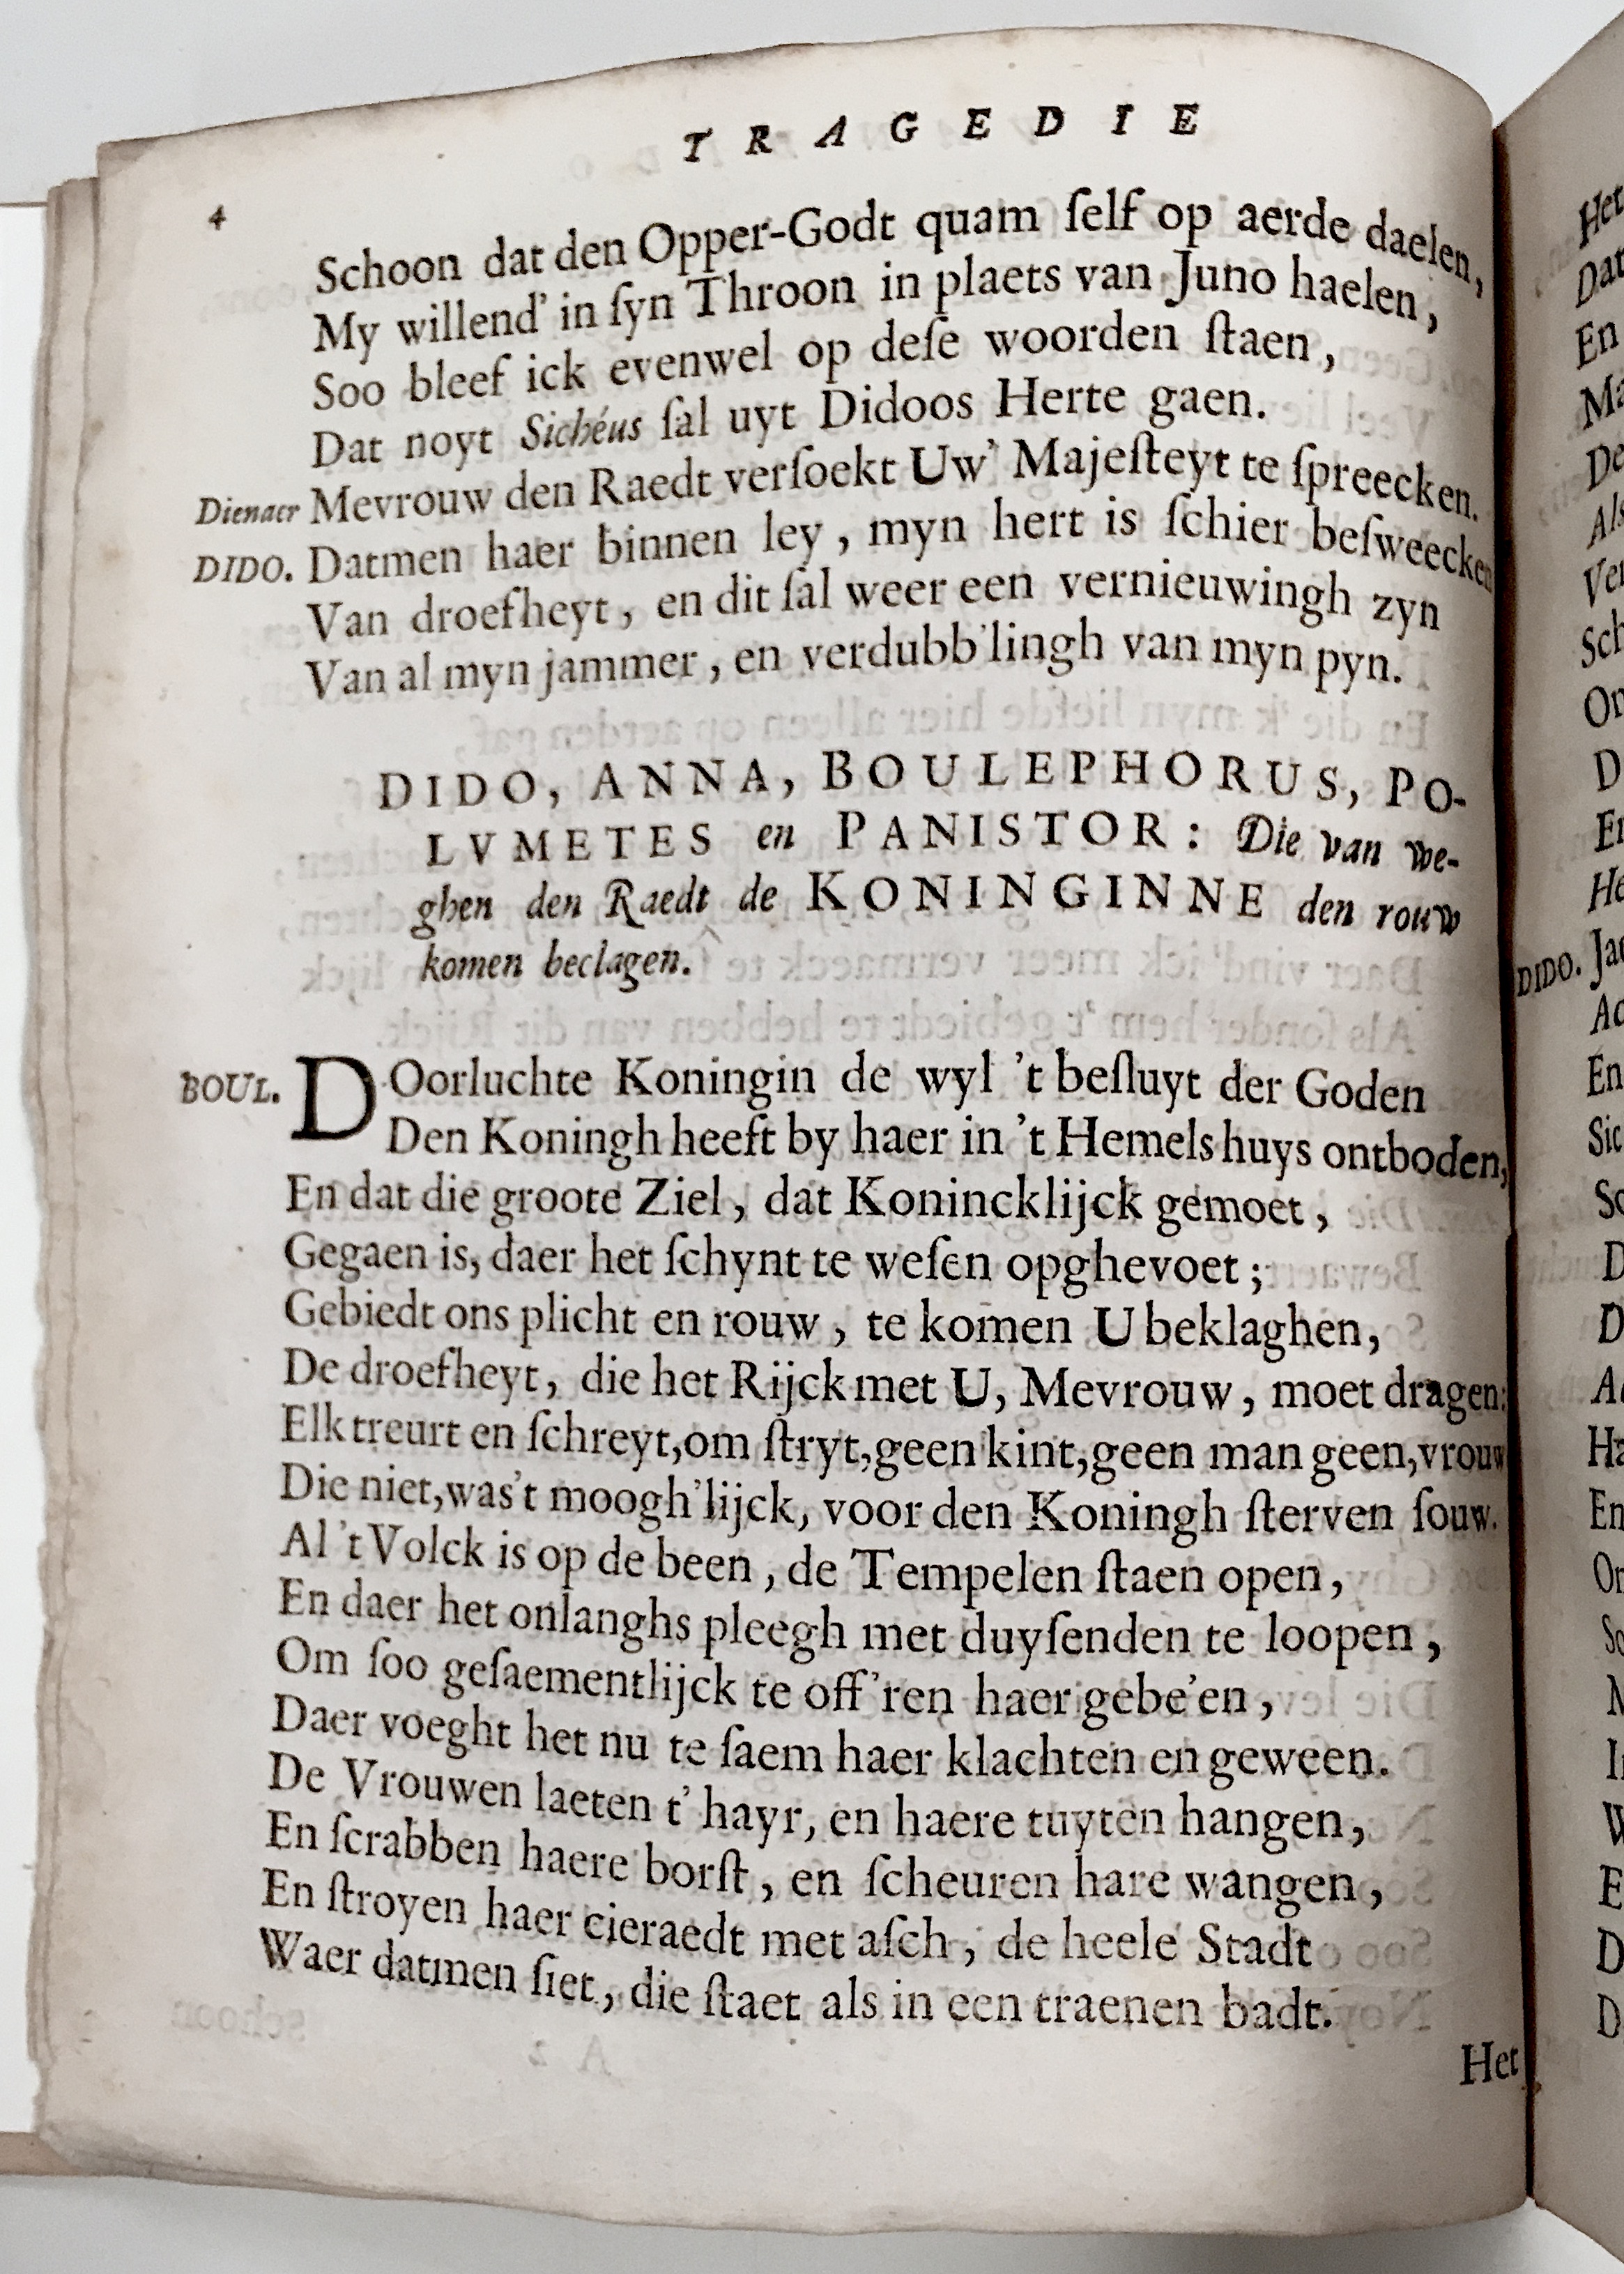 TRAGEDIE
4
Schoon dat den Opper-Godt quam ſelf op aerde daelen,
My willend' in ſyn Throon in plaets van Juno haelen,
Soo bleef ick evenwel op deſe woorden ſtaen,
Dat noyt Sichéus ſal uyt Didoos Herte gaen.
Dienaer Mevrouw den Raedt verſoekt Uw' Majeſteyt te ſpreecken.
DIDO. Datmen haer binnen ley, myn hert is ſchier beſweecken
Van droefheyt, en dit ſal weer een vernieuwingh zyn
Van al myn jammer, en verdubb'lingh van myn pyn.
DIDO, ANNA, BOULEPHORUS, PO-
LVMETES en PANISTOR: Die van we-
ghen den Raedt de KONINGINNE den rouw
komen beclagen.
BOUL. DOorluchte Koningin de wyl 't beſluyt der Goden
Den Koningh heeft by haer in 't Hemels huys ontboden,
En dat die groote Ziel, dat Konincklijck gemoet,
Gegaen is, daer het ſchynt te weſen opghevoet;
Gebiedt ons plicht en rouw, te komen U beklaghen,
De droefheyt, die het Rijck met U, Mevrouw, moet dragen:
Elk treurt en ſchreyt, om ſtryt, geen kint, geen man geen, vrouw
Die niet, was't moogh'lijck, voor den Koningh ſterven ſouw.
Al 't Volck is op de been, de Tempelen ſtaen open,
En daer het onlanghs pleegh met duyſenden te loopen,
Om ſoo geſaementlijck te off'ren haer gebe'en,
Daer voeght het nu te ſaem haer klachten en geween.
De Vrouwen laeten t' hayr, en haere tuyten hangen,
En ſcrabben haere borſt, en ſcheuren hare wangen,
En ſtroyen haer cieraedt met aſch, de heele Stadt
Waer datmen ſiet, die ſtaet als in een traenen badt.
Het